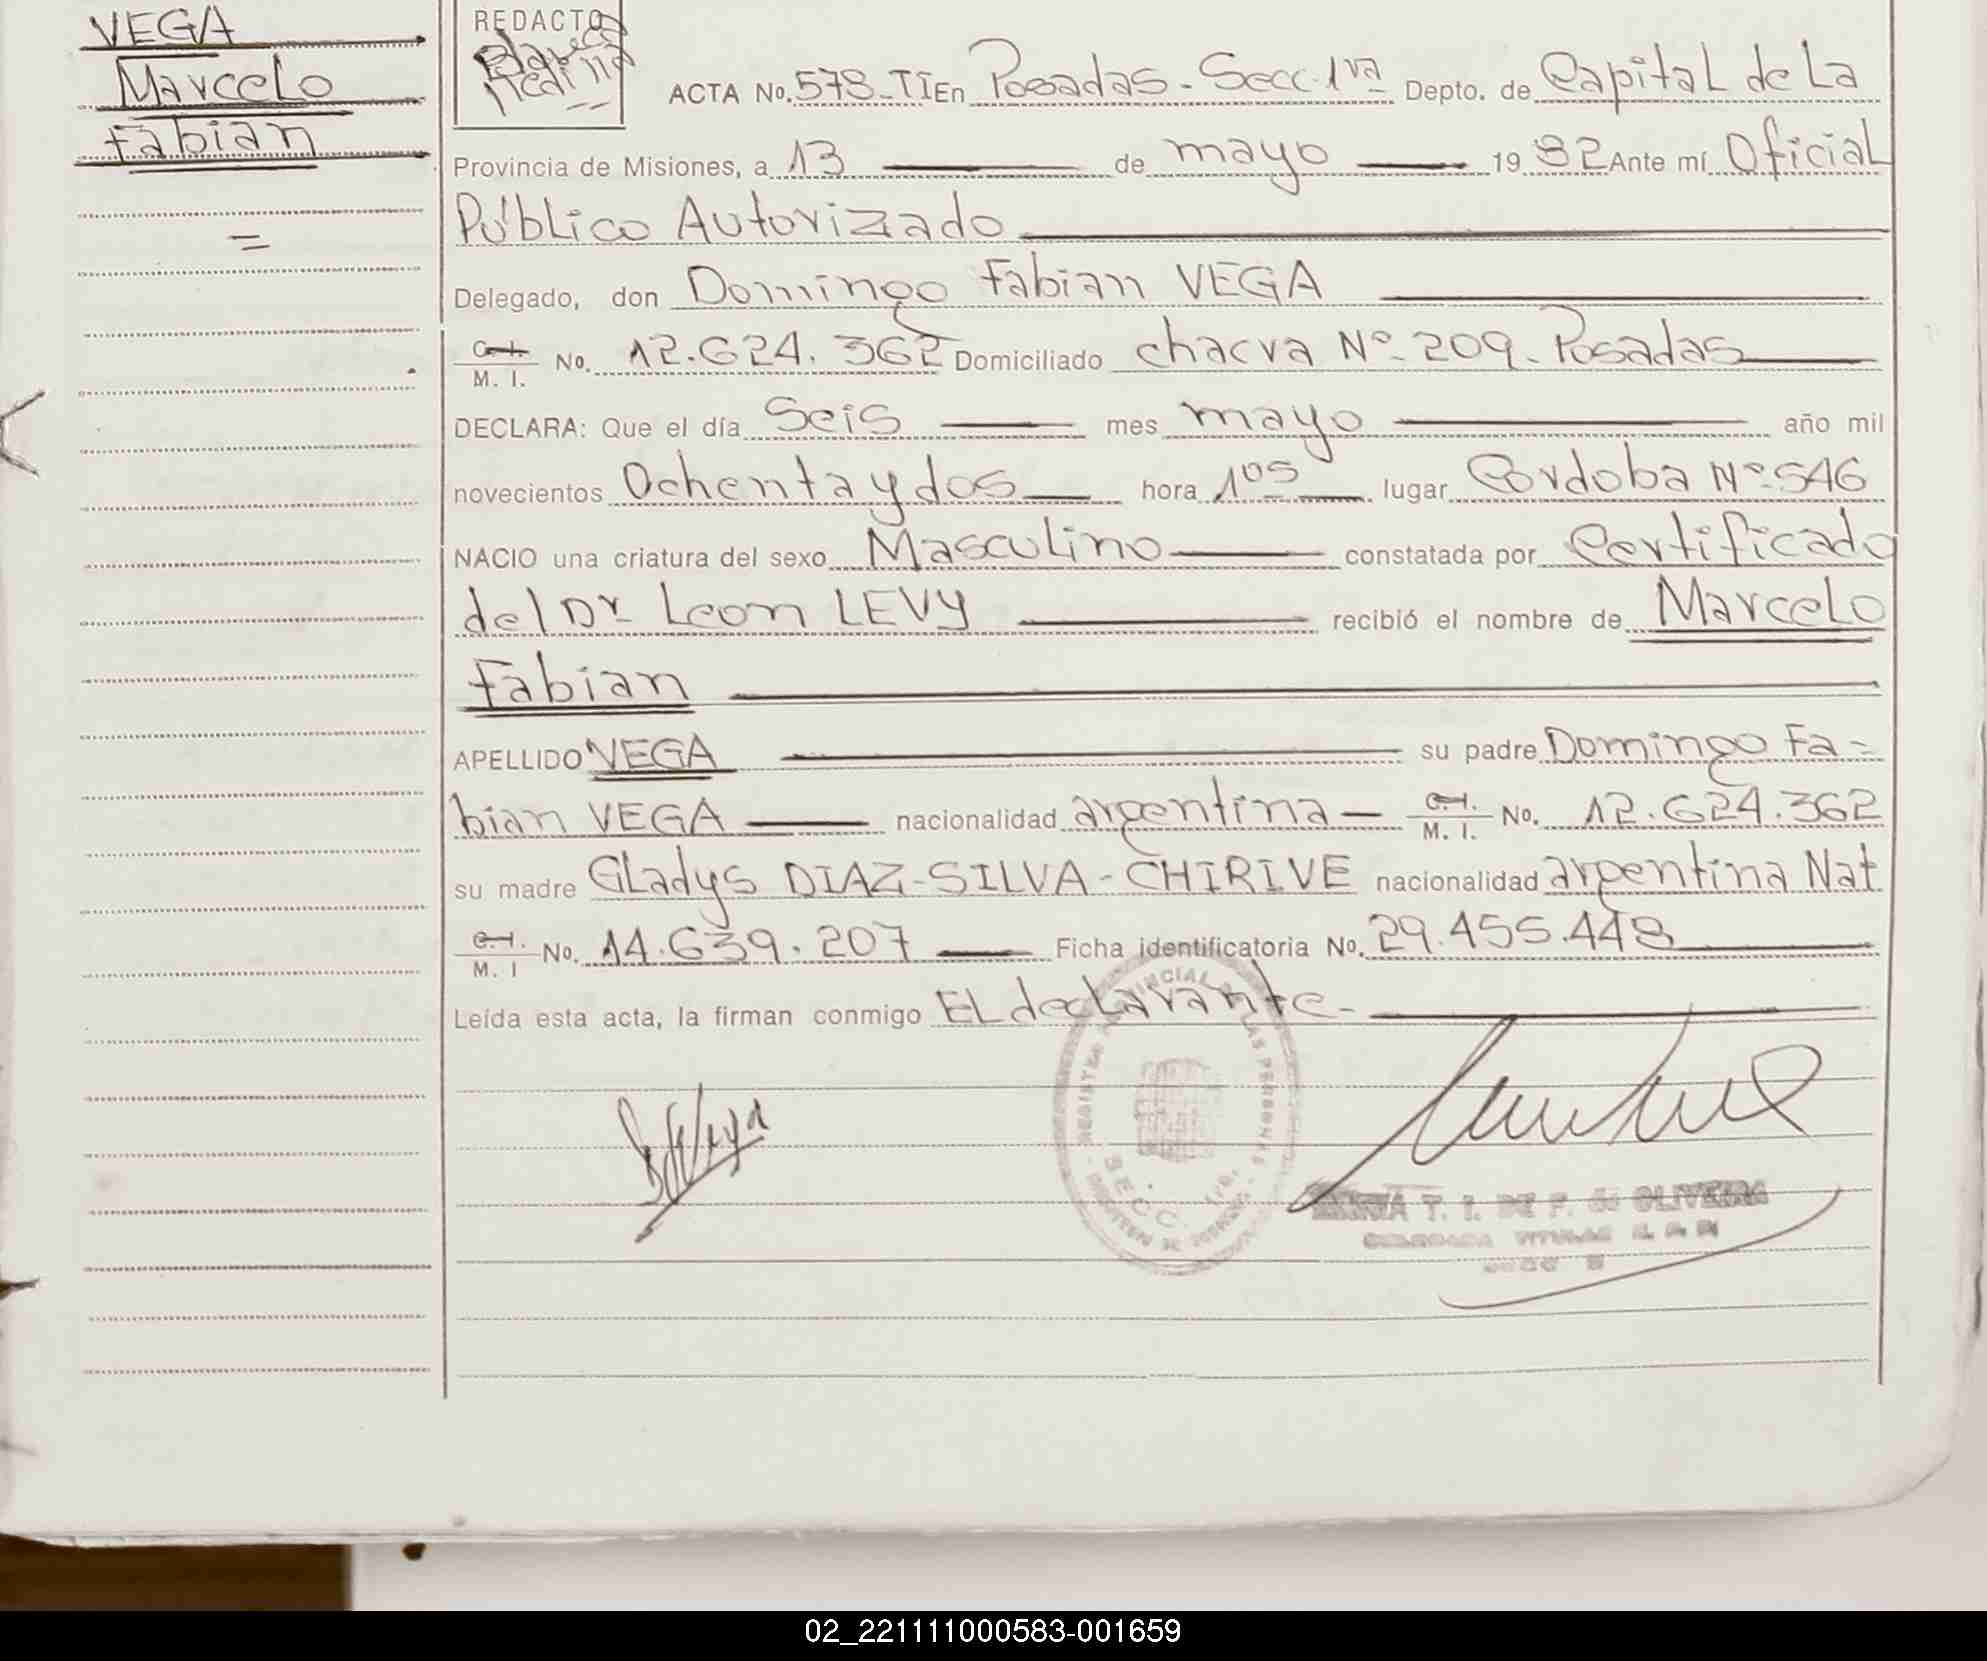 VEGA
Marcelo
Fabian
=
REDACTO
ACTA No. 578-TI En Posadas - Secc. 1ra Depto. de Capital de La
Provincia de Misiones, a 13 de mayo 1982 Ante mí Oficial
Público Autorizado
Delegado, don Domingo Fabian VEGA
C. I. M. I. No. 12.624.362 Domiciliado chacra Nº 209. Posadas
DECLARA: Que el día Seis mes mayo año mil
novecientos Ochenta y dos hora 1 05 lugar Cordoba Nº 546
NACIO una criatura del sexo Masculino constatada por Certificado
del Dr Leon LEVY recibió el nombre de Marcelo
Fabian
APELLIDO VEGA su padre Domingo Fa=
bian VEGA nacionalidad argentina C. I. M. I. No. 12.624.362
su madre Gladys DIAZ-SILVA-CHIRIVE nacionalidad argentina Nat
C. I. M. I No. 14.639.207 Ficha identificatoria No. 29.455.448
Leída esta acta, la firman conmigo El declarante.
T. I. DE F. de OLIVEIRA
SECC. 1ra.
02_221111000583-001659